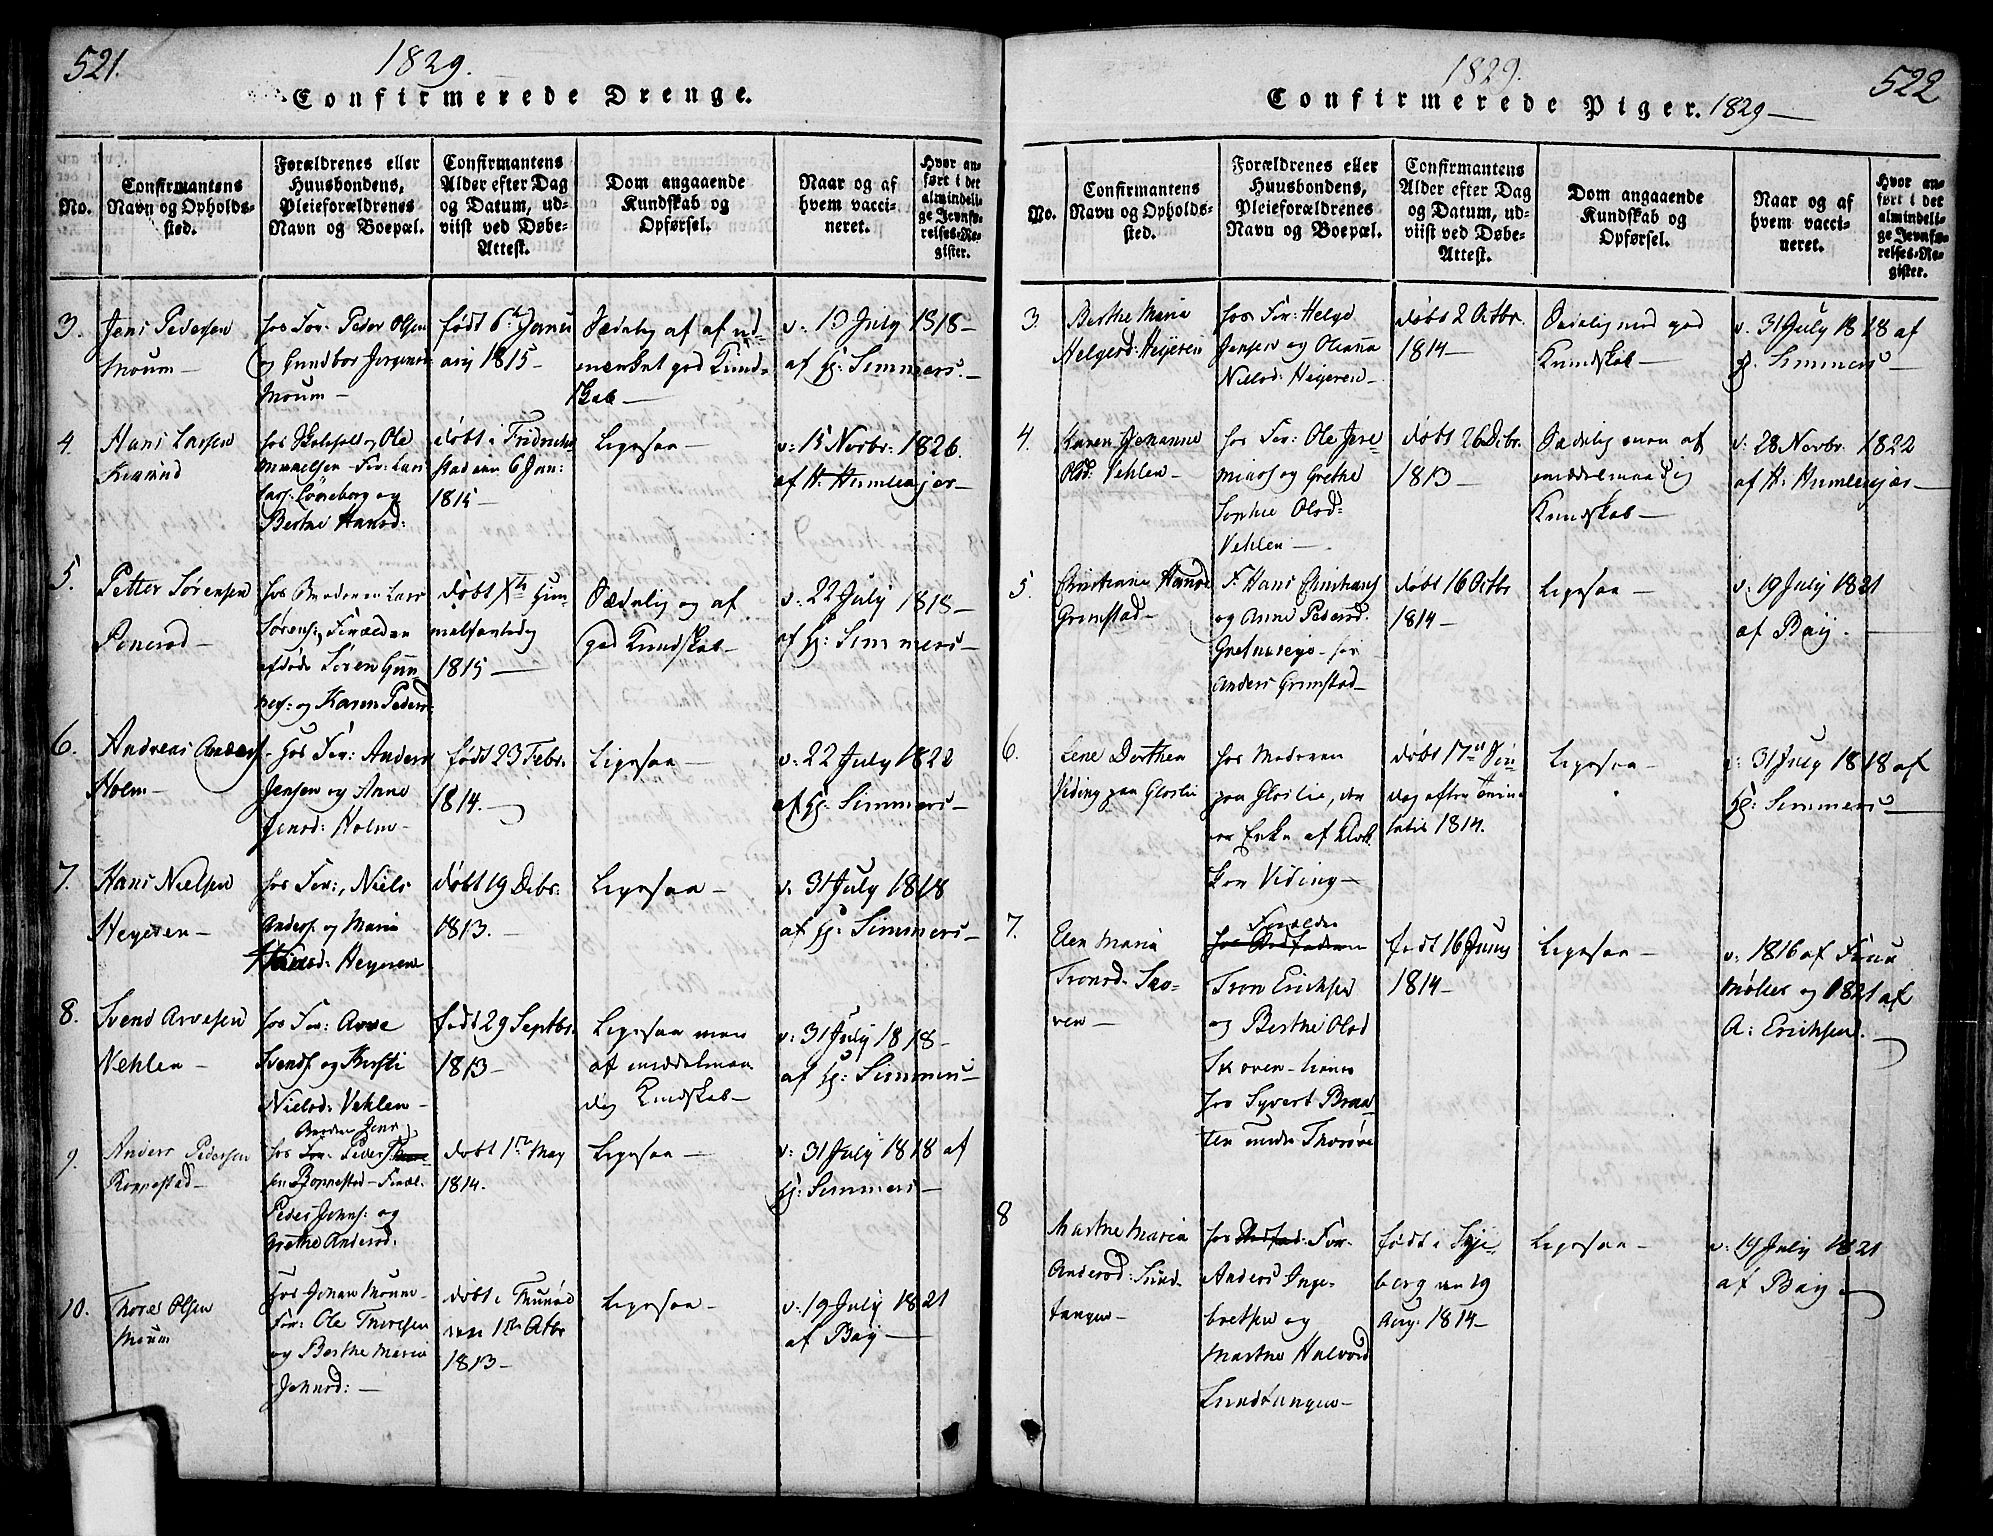 521.
1829.
Confirmerede Drenge.
No.
Confirmantens
Navn og Opholds-
sted.
Forældrenes eller
Huusbondens,
Pleieforældrenes
Navn og Boepæl.
Confirmantens
Alder efter Dag
og Datum, ud-
viist ved Døbe-
Attest.
Dom angaaende
Kundskab og
Opførsel.
Naar og af
hvem vacci-
neret.
Hvor an-
ført i det
almindeli-
ge Jevnfø-
relses-Re-
gister.
3.
Jens Pedersen
Moum-
hos For: Peder Olsen
og Gundbor Jørgensd
Moum-
født 6te Janu
arij 1815-
Sædelig af af ud-
mærket god Kund-
skab-
v: 13 July 1818-
af Hr: Simmers.-
4.
Hans Larsen
hos Skoleh: Ole
- For: Lars
Lars:
og
Berthe Hansd:
døbt i Fridrichs
stad den 6 Jan:
1815-
Ligesaa-
v: 15 Novbr: 1826.
af H. Humlekjær-
5.
Petter Sørensen
hos Broderen Lars
Sørens: Forældre
afdøde Søren Gun
og Karen Pedersd:
døbt Xti Him
melfartsdag
1815-
Sædelig og af
god Kundskab-
v: 22 July 1818-
af Hr: Simmers-
6.
Andreas Anders:
Holm-
hos For: Anders
Jensen og Anne
Jensd: Holm-
født 23 Febr.
1814.-
Ligesaa-
v: 22 July 1822
af Hr: Simmers-
7.
Hans Nielsen
Heyeren-
hos For:, Niels
Anders: og Maria
Hansd: Heyeren
døbt 19 Debr:
1813.-
Ligesaa-
v: 31 July 1818
af Hr: Simmers-
8.
Svend Arvesen
Vehlen-
hos For: Arve
Svends: og Kirsti
Nielsd: Vehlen-
født 29 Septbr.
1813-
Ligesaa men
af middelmaa
dig Kundskab-
v: 31 July 1818-
af Hr: Simmers-
9.
Anders Pedersen
Roppestad-
Anders Jens:
hos For: Peder
sen Roppestad- Foræl.
Peder Johns: og
Grethe Andersd.
døbt 1ste May
1814.
Ligesaa-
v: 31 July 1818 af
Hr: Simmers-
10.
Thores Olsen
Moum
hos Johan Moum-
For: Ole Thoresen
og Berthe Maria
Johnsd:-
døbt i Thunøe
den 1ste Octbr
1813-
Ligesaa-
v: 19 July 1821
af Bay-
1829.
522
Confirmerede Piger. 1829-
No.
Confirmantens
Navn og Opholds-
sted.
Forældrenes eller
Huusbondens,
Pleieforældrenes
Navn og Boepæl.
Confirmantens
Alder efter Dag
og Datum, ud-
viist ved Døbe-
Attest.
Dom angaaende
Kundskab og
Opførsel.
Naar og af
hvem vacci-
neret.
Hvor an-
ført i det
almindeli-
ge Jevnfø-
relses-Re-
gister.
3.
Berthe Maria
Helgesd: Heyeren
hos For: Helge
Jensen og Oleana
Nielsd: Heyeren-
døbt 2 Octbr.
1814-
Sædelig med god
Kundskab-
v: 31 July 1818 af
Hr. Simmers-
4.
Karen Johanne
Olsd: Vehlen-
hos For: Ole Jere
mias: og Grethe
Sophie Olsd-
Vehlen-
døbt 26 Debr.
1813-
Sædelig men af
middelmaadig
Kundskab-
v: 28 Novbr. 1822
af H: Humlekjær-
5
Christiane Hansd
Grimstad-
F. Hans Christians
og Anne Pedersd.
hos
Anders Grimstad-
døbt 16 Octbr
1814-
Ligesaa-
v: 19 July 1821
af Bay.-
6.
Lene Dorthea
Viding paa Gloslie
hos Moderen
paa Gloslie, der
er Enke af Klok
ker Viding-
døbt 17de Søn
dag efter Trini
tatis 1814.
Ligesaa-
v: 31 July 1818 af
Hr: Simmers-
7.
Elen Maria
Tronsd. Sko-
ven-
Forældre
Tron Erichsen
og Berthe Olsd
Skoven- tiener
hos Syvert Braa
ten under Thorsøe
født 16 Juny
1814-
Ligesaa-
v: 1816 af Frue
Møller og 1821 af
A: Erichsen.
8
Marthe Maria
Andersd: Sund-
tangen-
hos For.
Anders Inge-
bretsen og
Marthe Halvorsd
Sundtangen-
født i Skje-
berg den 19
Aug: 1814-
Ligesaa-
v: 19 July 1821
af Bay-